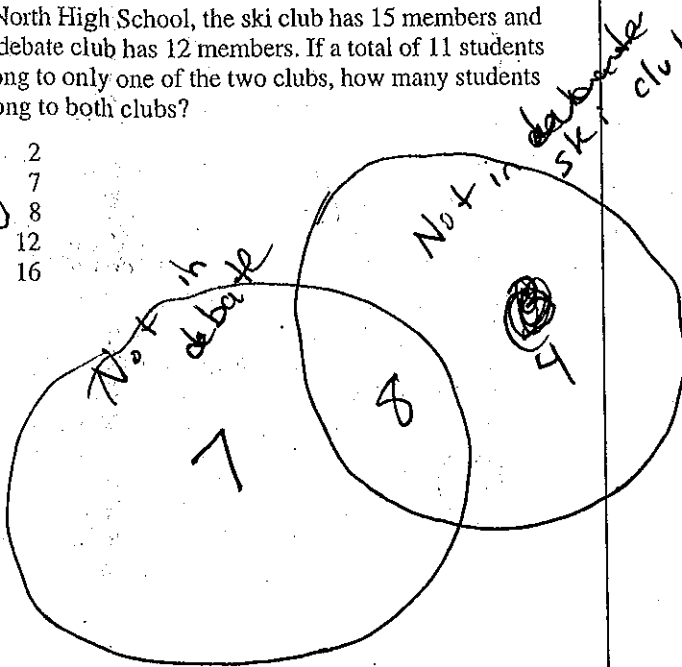 North High School, the ski club has 15 members and
debate club has 12 members. If a total of 11 students
ong to only one of the two clubs, how many students
ong to both clubs?
2
7
8
12
16
Not in debate
Not in
ski clu
7
8
4